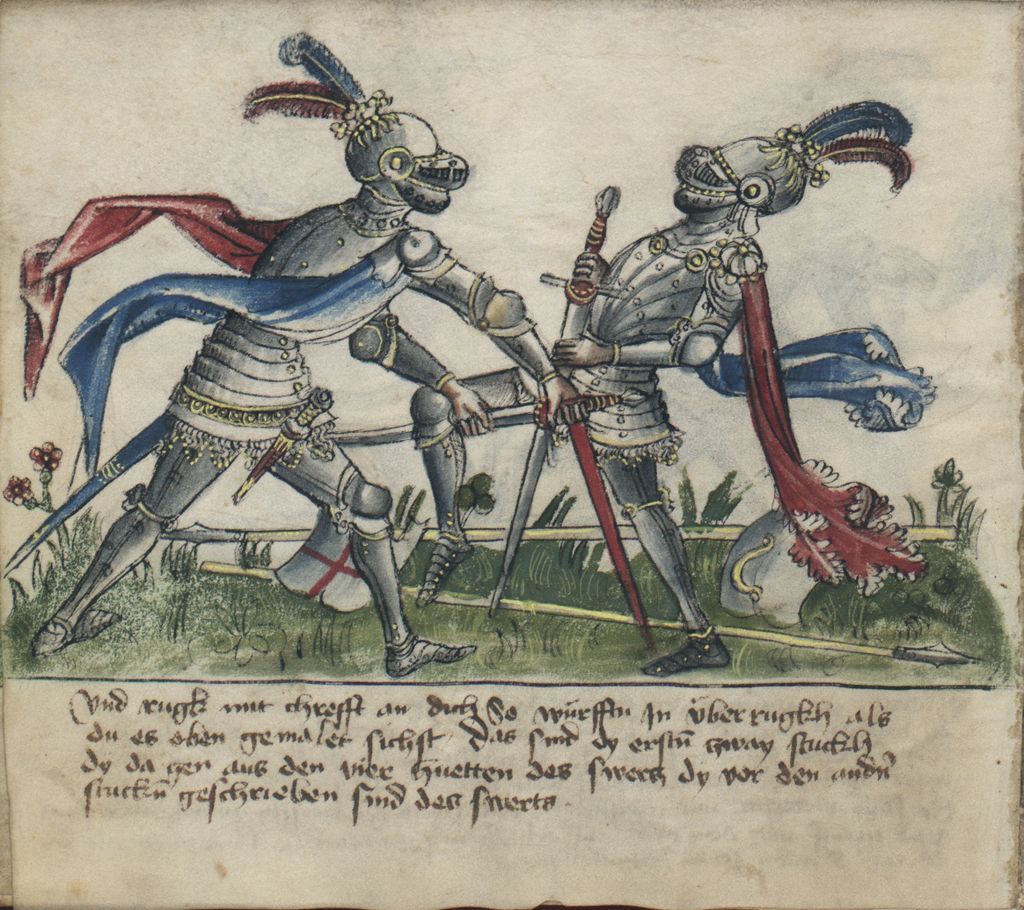 Vnd rugkh mit chrefft an dich So würffstu jn über rugkh als
du es eben gemalet sichst Das sind dy ersten zway stuckh
dy da gen aus den vier huetten des swerts dy vor den andern
stucken geschrieben sind des swerts